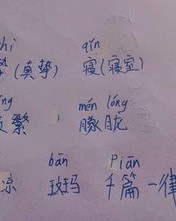 hi qǐn
(真挚) 寝(寝室)
ng mén lóng
繁 朦胧
bān Piān
凉 斑玛 千篇一律